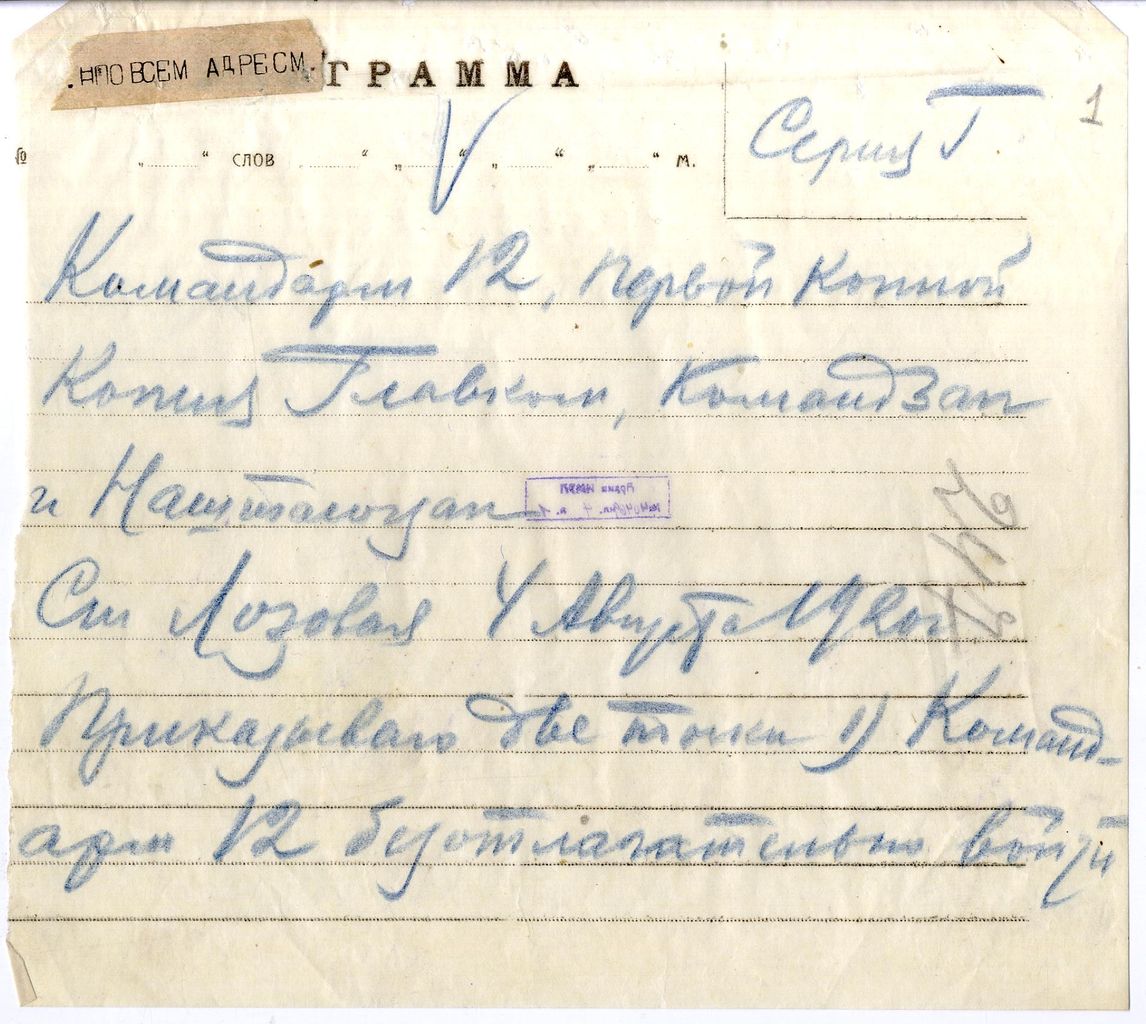 .НПО ВСЕМ АДРЕСМ. ГРАММА
Серия Г 1
№ „ “ слов „ “ „ “ „ “ „ “ м.
Командарм 12, Первой Конной
Копия Главком, КомандЗап
и Наштаюзап
Ст Лозовая 4 Августа 1920г
Приказываю две точки 1) Команд-
арм 12 безотлагательно войти